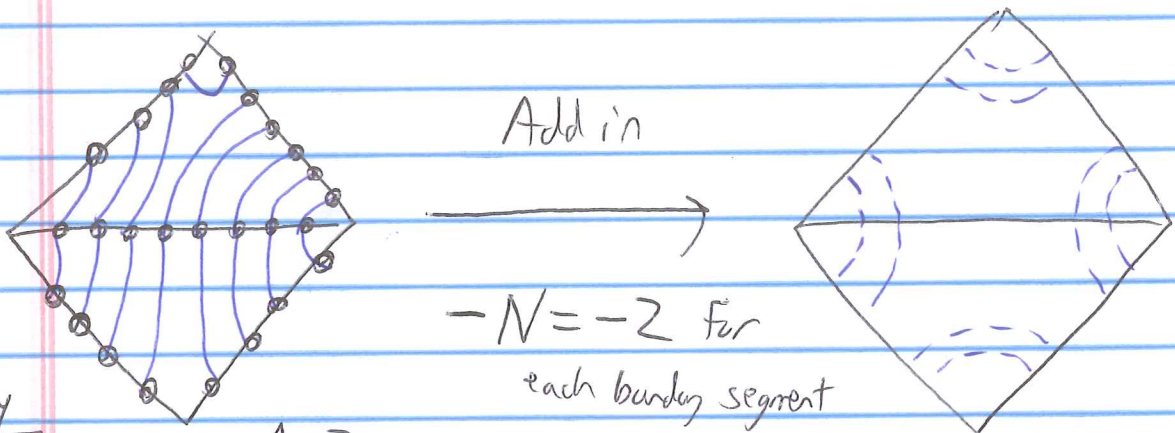 Add in
-N = -2 for
each bunday segment